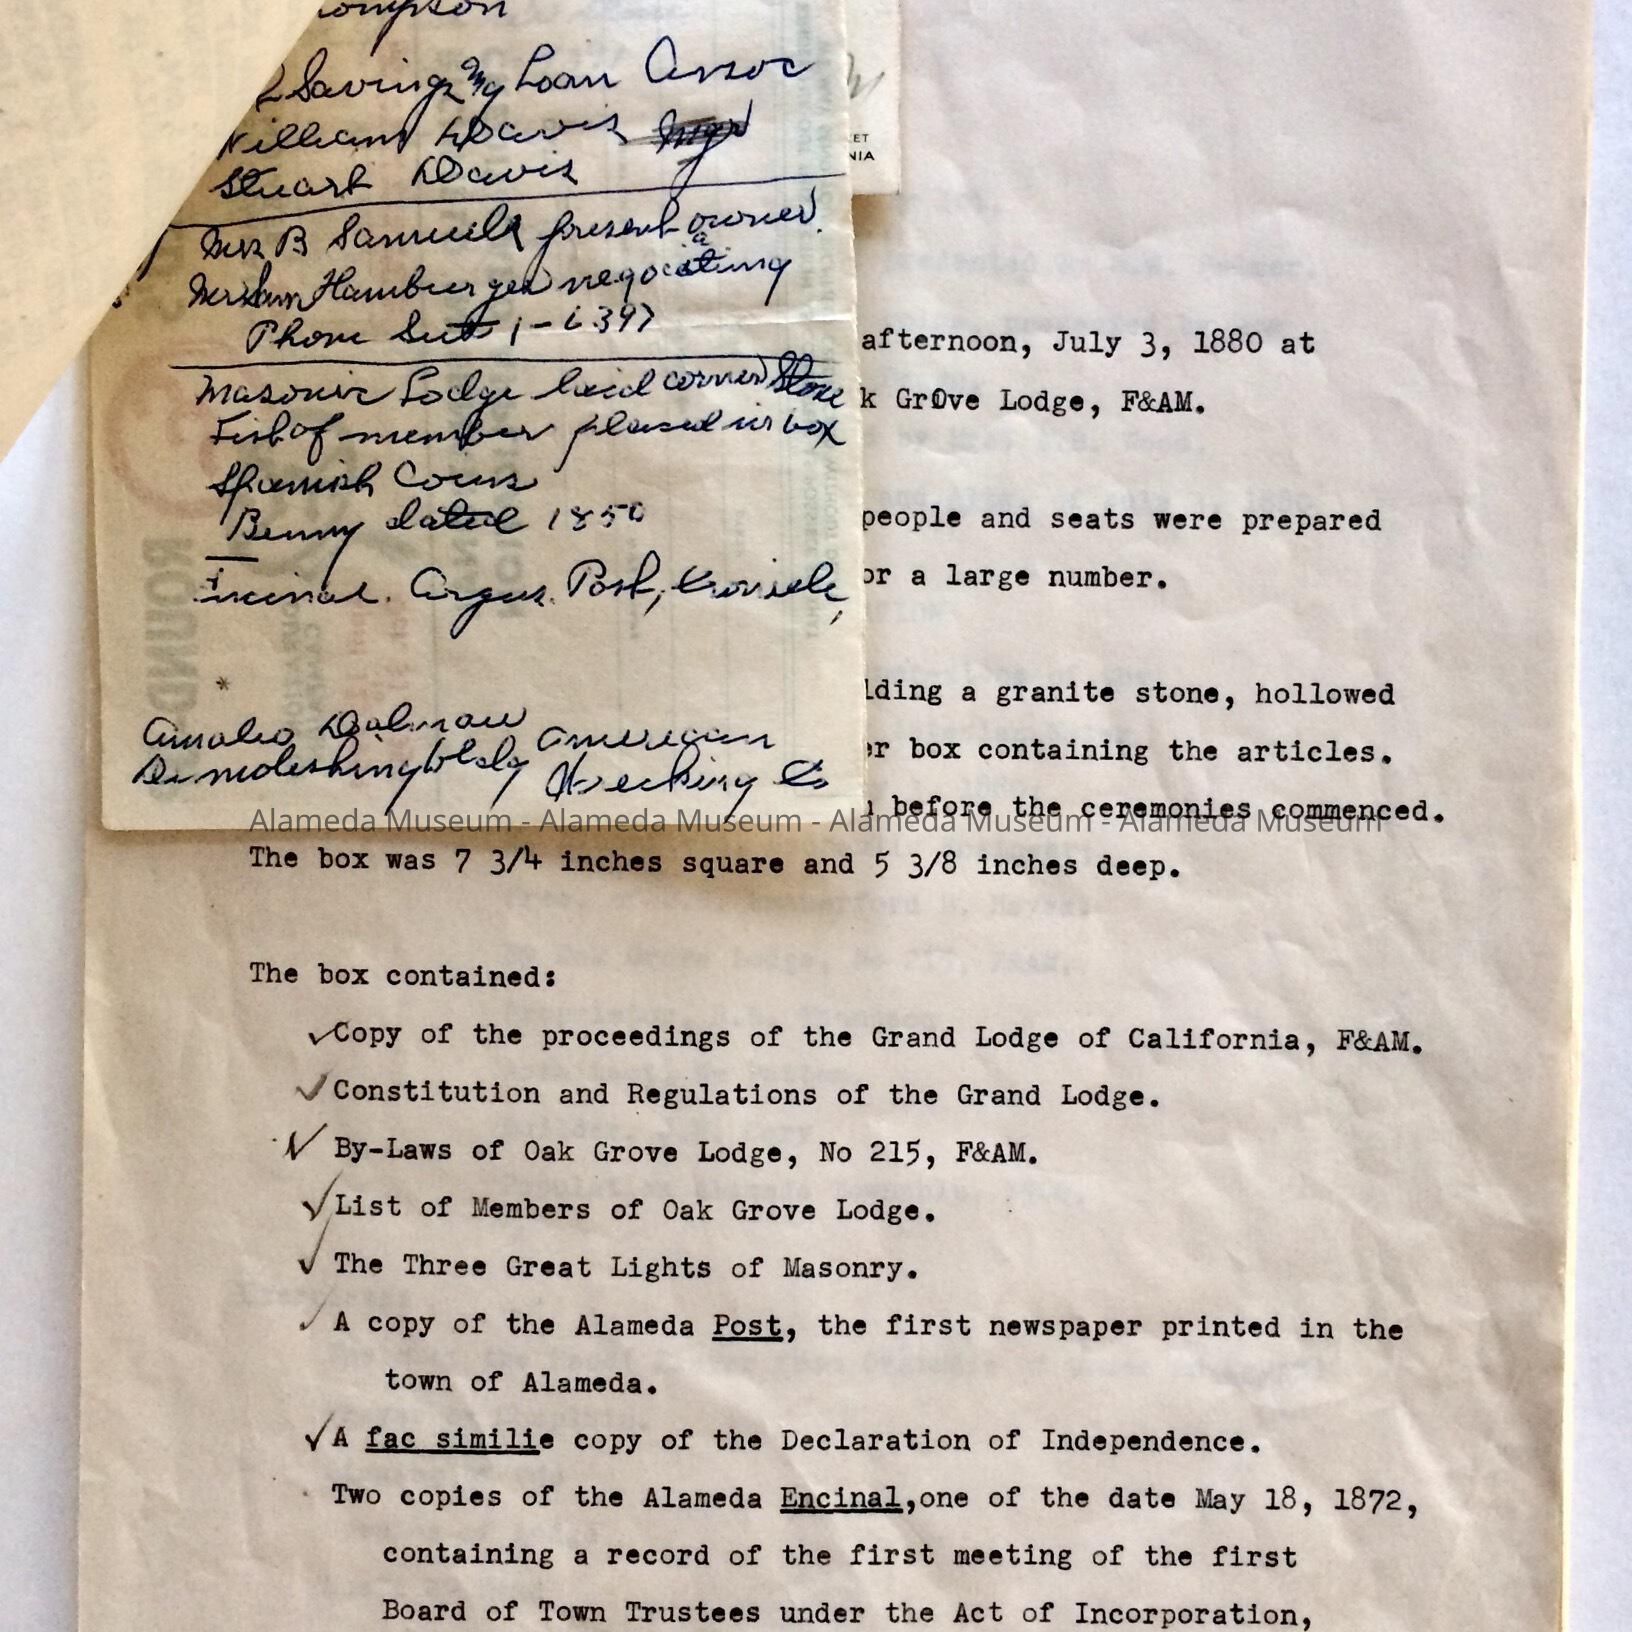 ompson
Savings & Loan Assoc
William Davis Mgr
Stuart Davis
Mrs B Samuels present owner.
Hamburger negociating
a
Phone Sut 1-6397
Masonic Lodge laid corner Stone
List of member placed in box
Spanish Coins
Penny dated 1850
Encinal. Argus. Post,
Demolishing bldg American
Wrecking Co
ET
NIA
afternoon, July 3, 1880 at
k Grove Lodge, F&AM.
people and seats were prepared
or a large number.
lding a granite stone, hollowed
er box containing the articles.
before the ceremonies commenced.
Alameda Museum - Alameda Museum - Alameda Museum - Alameda Museum
The box was 7 3/4 inches square and 5 3/8 inches deep.
The box contained:
Copy of the proceedings of the Grand Lodge of California, F&AM.
Constitution and Regulations of the Grand Lodge.
By-Laws of Oak Grove Lodge, No 215, F&AM.
List of Members of Oak Grove Lodge.
The Three Great Lights of Masonry.
A copy of the Alameda Post, the first newspaper printed in the
town of Alameda.
A fac similie copy of the Declaration of Independence.
Two copies of the Alameda Encinal,one of the date May 18, 1872,
containing a record of the first meeting of the first
Board of Town Trustees under the Act of Incorporation,